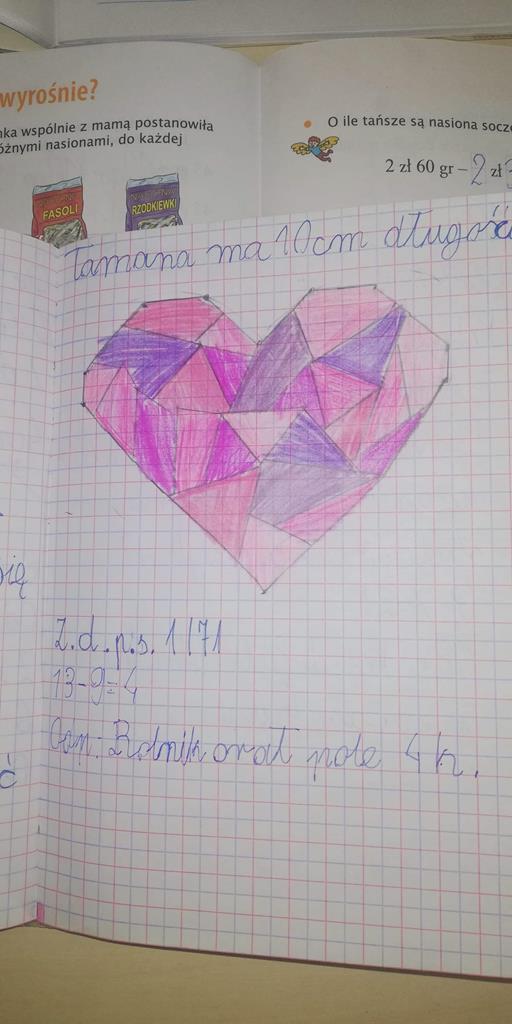 wyrośnie?
nka wspólnie z mamą postanowiła
óżnymi nasionami, do każdej
FASOLI
RZODKIEWKI
O ile tańsze są nasiona socze
2 zł 60 gr – 2 zł 3
Łamana ma 10cm długośc
się
Z.d.p.s. 1/71
13-9=4
Odp: Rolnik orał pole 4h.
ć